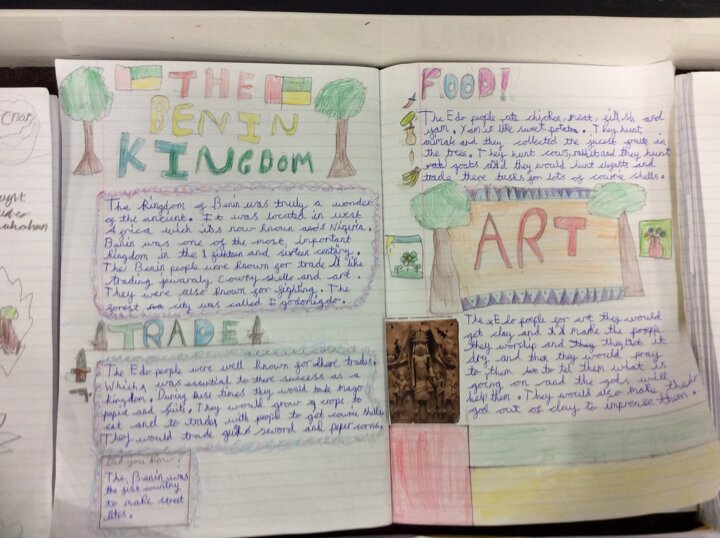 THE
BENIN
KINGDOM
The Kingdom of Benin was truly a wonder
of the ancient. It was located in west
Africa wich its now known as Nigeria.
Benin was one of the most important
Kingdom in the fifteen and sixteen century.
The Benin people were known for trade like
trading jewerely Cowry shells and art.
They were also known for fighting. The
forest city was called
TRADE
The Edo people were well known for their trades.
Which was essential to there success as a
Kingdom. During these times they would take mago
papia and fruits. They would grow crops to
eat and to trades with people to get cowrie shells.
They would trade sword and
Did you know?
The Benin was
the fist country
to make street
lites.
FOOD!
The Edo people ate chicken, meat, fish and
yam. Yam is like sweet potatoe. They hunt
animals and they collected the juicest fruits on
the trees. They hunt cows, rabbits and they hunt
goats and they would hunt
trade there tusks for lots of cowrie shells.
ART
The Edo people for art they would
get clay and make the people
they worship and they let it
dry and then they would pray
to them to tell them what is
going on and the gods will
help them. They would also make their
god out of clay to imprease them.